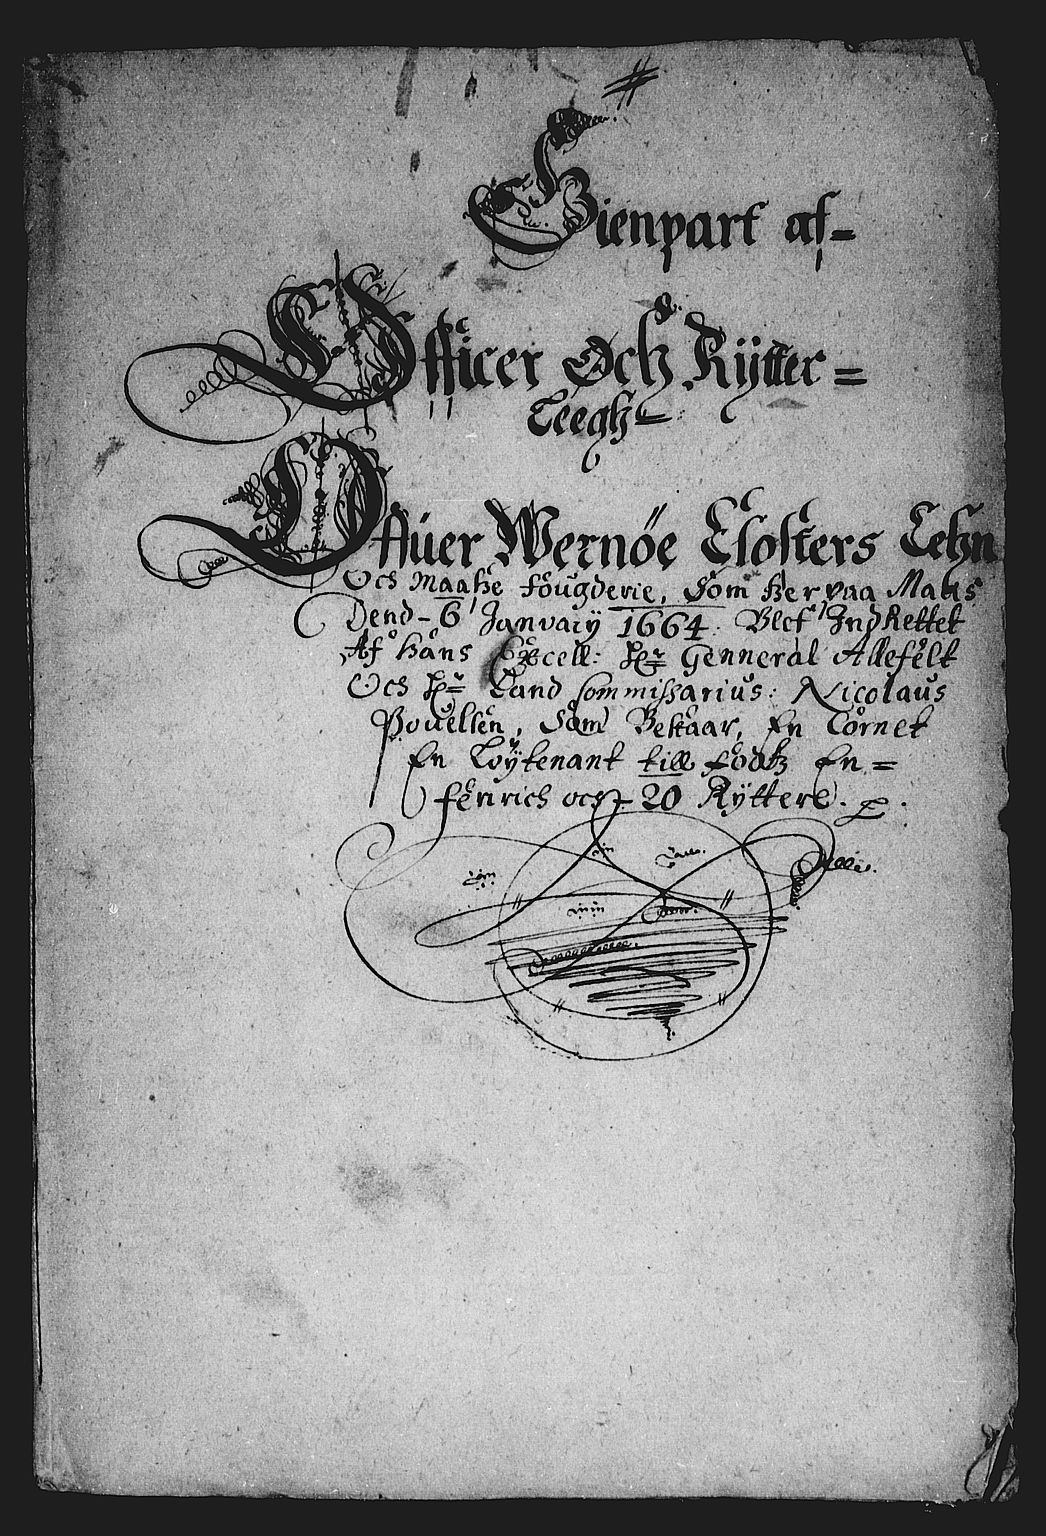 Gienpart af-
Officer Och Rÿtter=
Leegh
Offuer Wernøe Closters Lehn
Och Maatze fougderie, Som her paa Maas
Dend-6 Januarÿ 1664. Blef Indrettet
Af hans Excell: Hr Genneral Allefelt
Och Hr Land Commissarius: Nicolaus
Pouelsen, Som Bestaar, En Cornet
En Løÿtenant till fodtz En=
fenrich och- 20 Rÿttere.